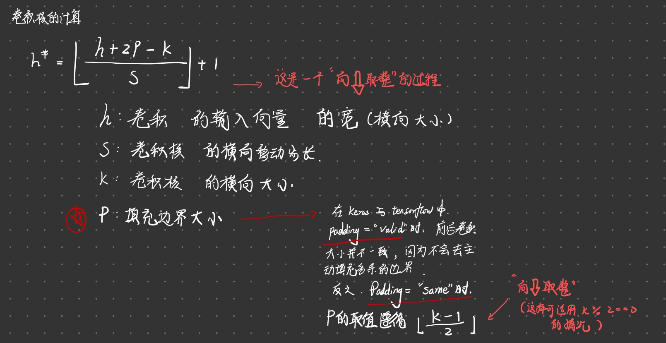 卷积核的计算
h* = ⌊(h+2P-k)/S⌋+1
这是一个"向⇩取整"的过程
h:卷积 的输入向量 的宽(横向大小)
S:卷积核 的横向移动步长.
K:卷积核 的横向大小.
P:填充边界大小
在 keras 与 tensorflow 中.
padding="valid"时,前后
大小并不一致,因为不会去主
动填充 的边界.
反之.Padding="same"时.
P的取值遵循 ⌊(k-1)/2⌋
"向⇩取整"
(这样可适用 k%2==0
的情况)